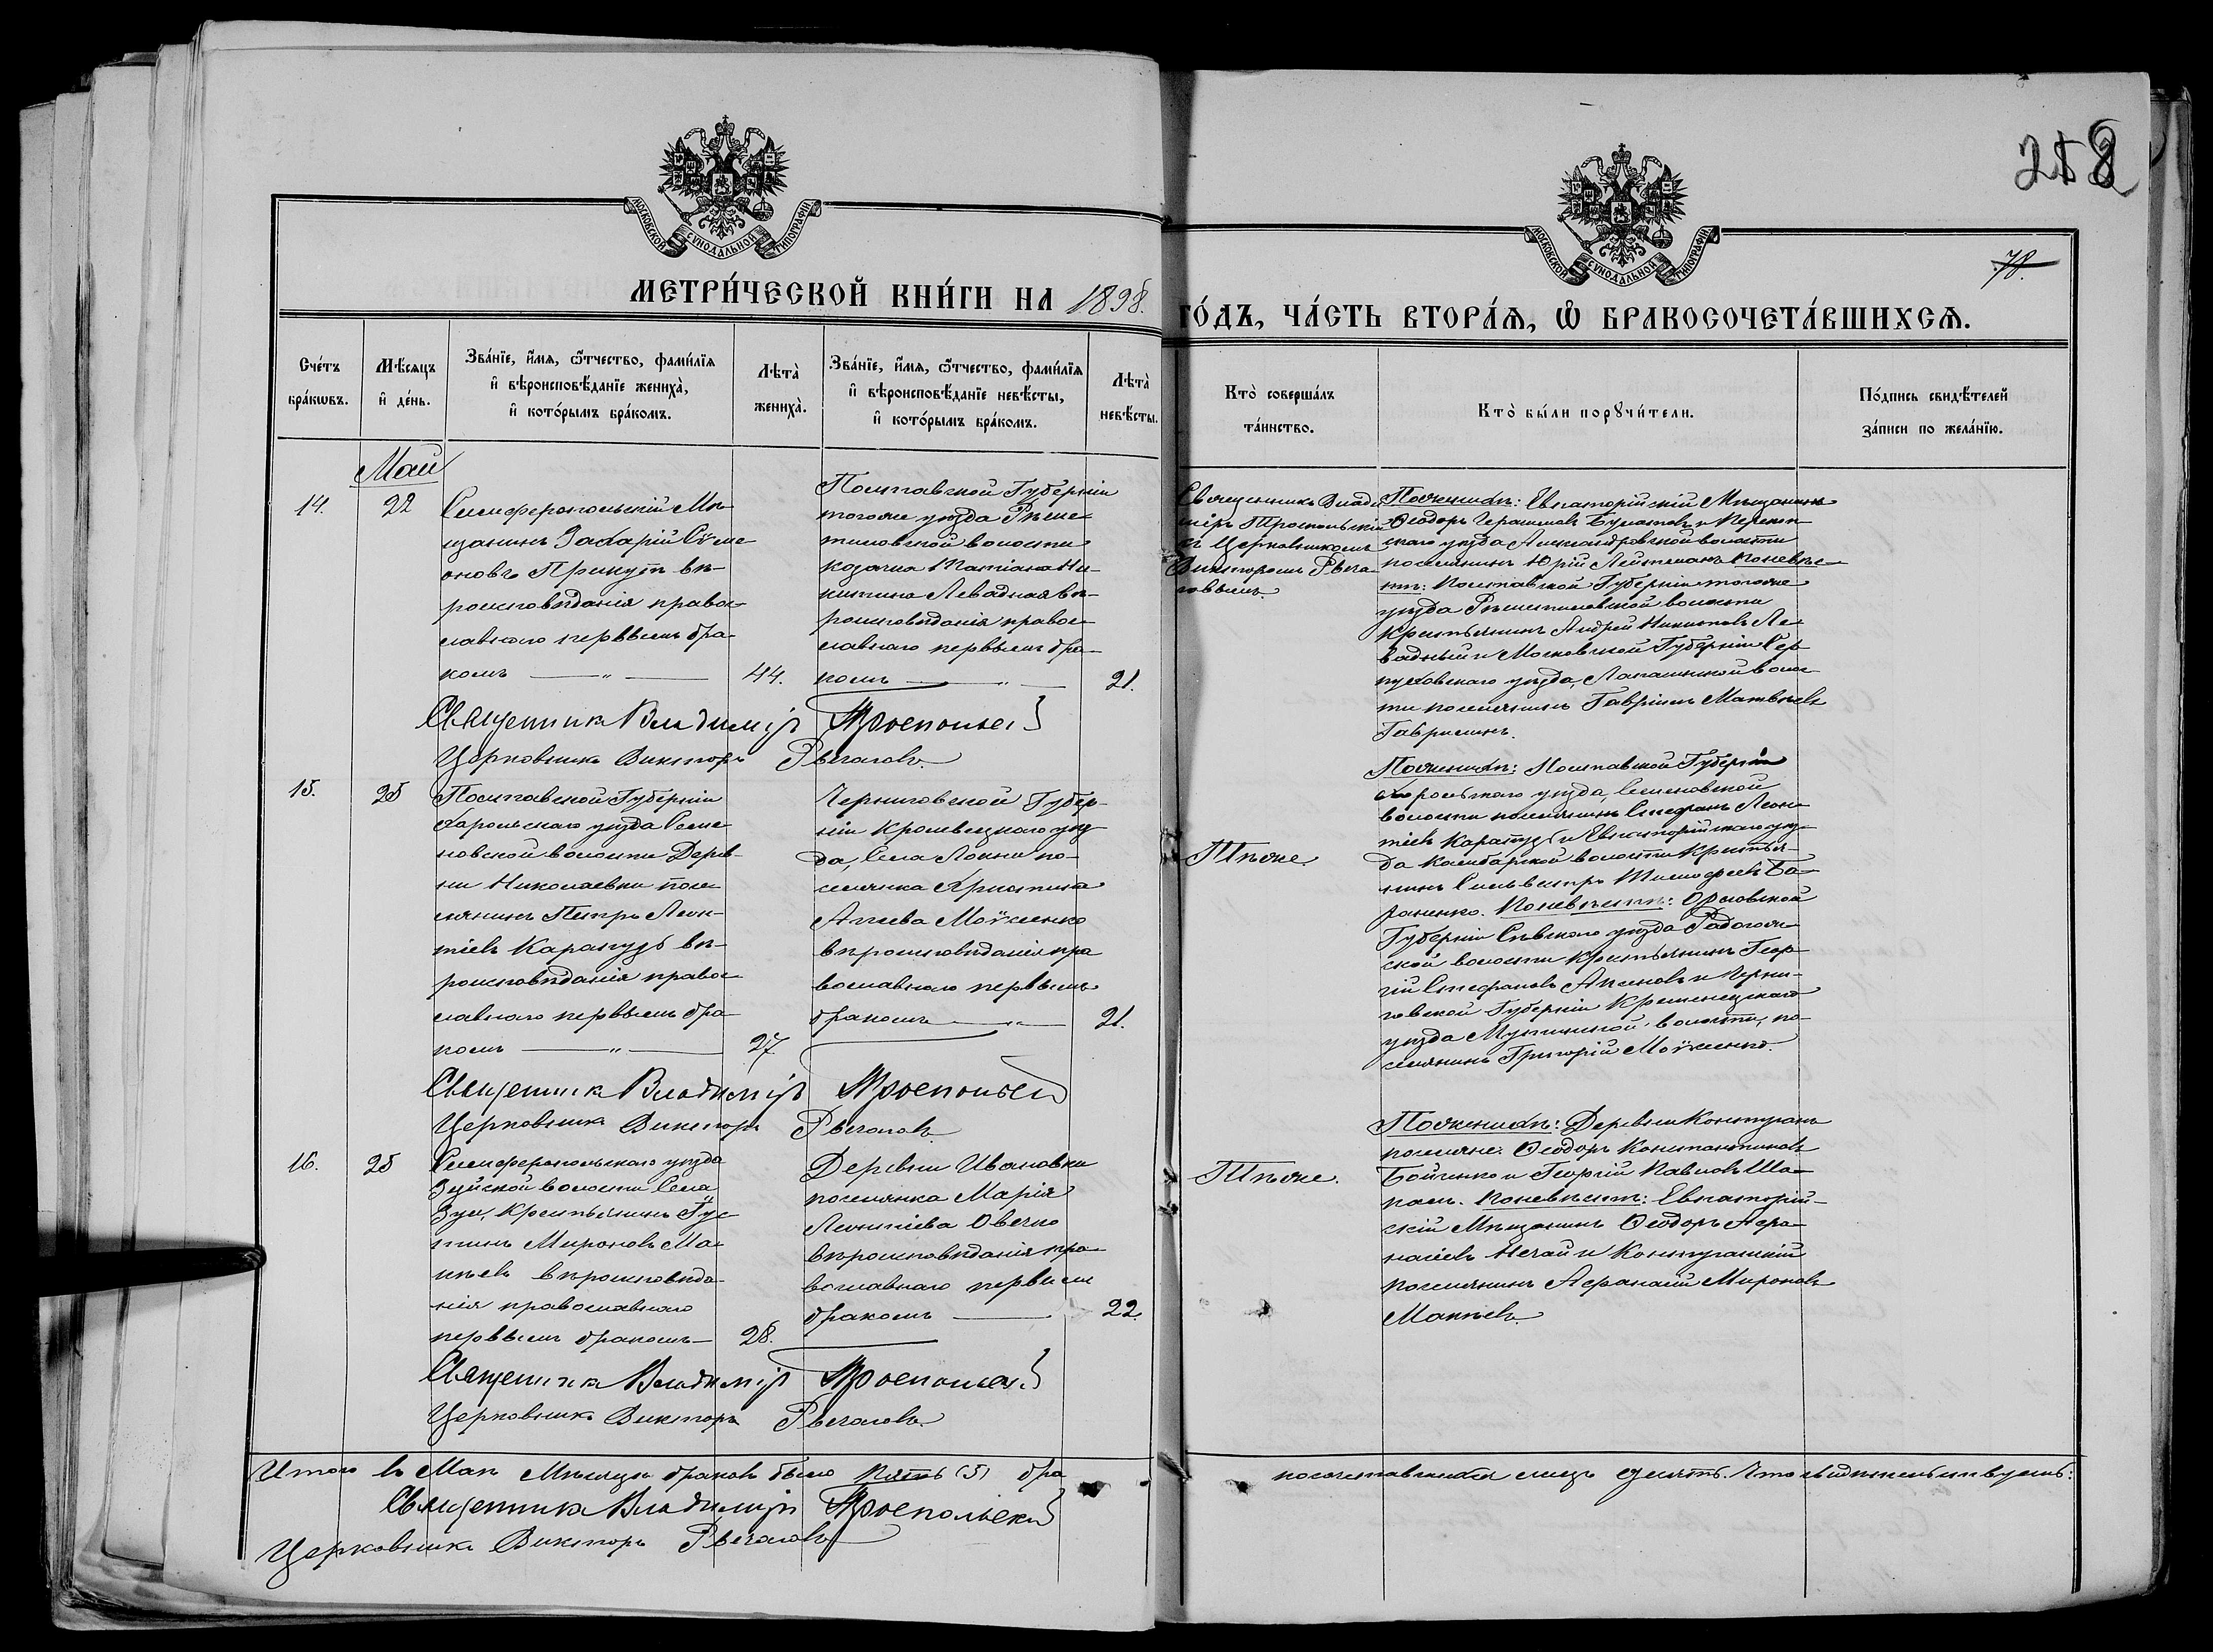 258
78.
МОСКОВСКОЙ СѴНОДАЛЬНОЙ ТИПОГРАФІИ
МОСКОВСКОЙ СѴНОДАЛЬНОЙ ТИПОГРАФІИ
МЕТРИ́ЧЕСКОЙ КНИ́ГИ НА 1898.
ГО́ДЪ, ЧА́СТЬ ВТОРА́Я, Ѡ БРАКОСОЧЕТА́ВШИХСЯ.
Сче́тъ
бра́кѡвъ.
Мѣ́сяцъ
и҆ де́нь.
Зва́нїе, и҆́мя, ѻ҆́тчество, фами́лїя
и҆ вѣроисповѣ́данїе жениха̀,
и҆ кото́рымъ бра́комъ.
Лѣта̀
жениха̀.
Зва́нїе, и҆́мя, ѻ҆́тчество, фами́лїя
и҆ вѣроисповѣ́данїе невѣ́сты,
и҆ кото́рымъ бра́комъ.
Лѣта̀
невѣ́сты.
Кто̀ соверша́лъ
та́инство.
Кто̀ бы́ли порꙋчи́тели.
По́дпись свидѣ́телей
за́писи по жела́нїю.
Май
14.
22
Симферопольскій Мѣ-
щанинъ Захарій Симе
оновъ Прикутъ вѣ-
роисповѣданія право
славнаго первымъ бра-
комъ — " —
44.
Полтавской Губерніи
тогоже уѣзда Рѣше-
тиловской волости
козачка Татіана Ни-
китина Левадная вѣ-
роисповѣданія право-
славнаго первымъ бра-
комъ — " —
21.
Священникъ Влади
міръ Троепольскій
съ Церковникомъ
Викторомъ Рвача-
говымъ.
По женихѣ: Евпаторійскій Мѣщанинъ
Ѳеодоръ Герасимовъ Булатовъ и Перекоп
скаго уѣзда Александровской волости
поселянинъ Юрій Лейтманъ. По невѣс-
тѣ: Полтавской Губерніи тогоже
уѣзда Рѣшетиловской волости
Крестьянинъ Андрей Никитовъ Ле-
вадный и Московской Губерніи Сер-
пуховскаго уѣзда, волос
ти поселянинъ Гавріилъ Матвѣевъ
Гаврилинъ.
Священникъ Владиміръ Троепольскій
Церковникъ Викторъ Рвачаговъ.
15.
25
Полтавской Губерніи
Хорольскаго уѣзда Семе
новской волости Дерев-
ни Николаевки посе
лянинъ Петръ Леон-
тіевъ Карапузъ вѣ-
роисповѣданія право
славнаго первымъ бра-
комъ — " —
27.
Черниговской Губер-
ніи Кролевецкаго уѣз
да, Села Локни по-
селянка Христина
Мойсеенко
вѣроисповѣданія пра
вославнаго первымъ
бракомъ — " —
21.
Тѣже.
По женихѣ: Полтавской Губерніи
Хорольскаго уѣзда, Семеновской
волости поселянинъ Стефанъ Леон
тіевъ Карапузъ и Евпаторійскаго уѣз-
да волости Крестья-
нинъ Сильвестръ Тимофеевъ Ба-
раненко. По невѣстѣ: Орловской
Губерніи Сѣвскаго уѣзда Радогощ-
ской волости крестьянинъ Геор-
гій Стефановъ Аксеновъ и Черни-
говской Губерніи
уѣзда волости, по-
селянинъ Григорій Мойсеенко.
Священникъ Владиміръ Троепольскій
Церковникъ Викторъ Рвачаговъ.
16.
25
Симферопольскаго уѣзда
Зуйской волости Села
Зуи, Крестьянинъ Гус
тинъ Мироновъ Ма-
кѣевъ вѣроисповѣда-
нія православнаго
первымъ бракомъ —
28.
Деревни Ивановки
поселянка Марія
Леонтіева Овечко
вѣроисповѣданія пра-
вославнаго первымъ
бракомъ —
22.
Тѣже.
По женихѣ: Деревни Контуганъ
поселяне: Ѳеодоръ Константиновъ
Бойченко и Георгій Павловъ Ша-
По невѣстѣ: Евпаторій-
скій Мѣщанинъ Ѳеодоръ Афа-
насіевъ Нечай и Контуганскій
поселянинъ Афанасій Мироновъ
Макѣевъ.
Священникъ Владиміръ Троепольскій
Церковникъ Викторъ Рвачаговъ.
Итого въ Маѣ Мѣсяцѣ браковъ было пять (5) бра
косочетавшихся лицъ десять. Что свидѣтельствуемъ:
Священникъ Владиміръ Троепольскій
Церковникъ Викторъ Рвачаговъ